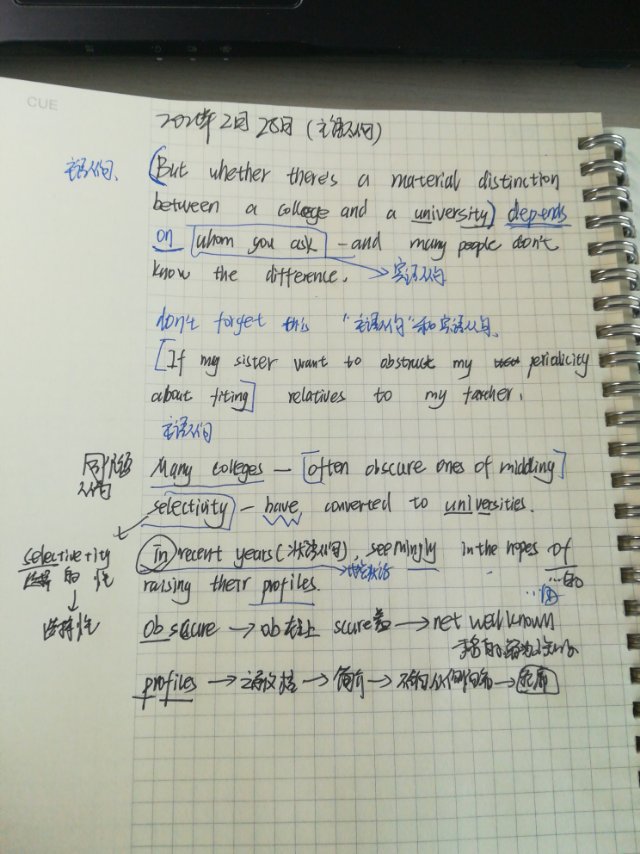 CUE
2021年2月28日(主语从句)
主语从句、
(But whether there's a material distinction
between a college and a university) depends
on [whom you ask] — and many people don't
know the difference.
宾语从句
don't forget this "主语从句"和宾语从句、
[If my sister want to obstruct my periodicity
about fiting] relatives to my farcher.
主语从句
同位语
从句
Many colleges — [often obscure ones of middling]
selectivity — have converted to universities.
In recent years(状语从句), seemingly in the hopes of
raising their profiles.
selective+ity
选择的 性
↓
选择性
obscure → ob在上 scure盖 → not well known
profiles → → 简介 →